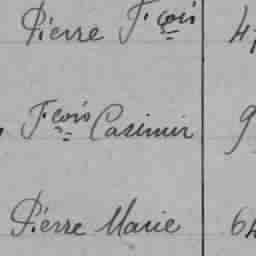 Pierre Fçois 47
Fçois Casimir 9
Pierre Marie 64